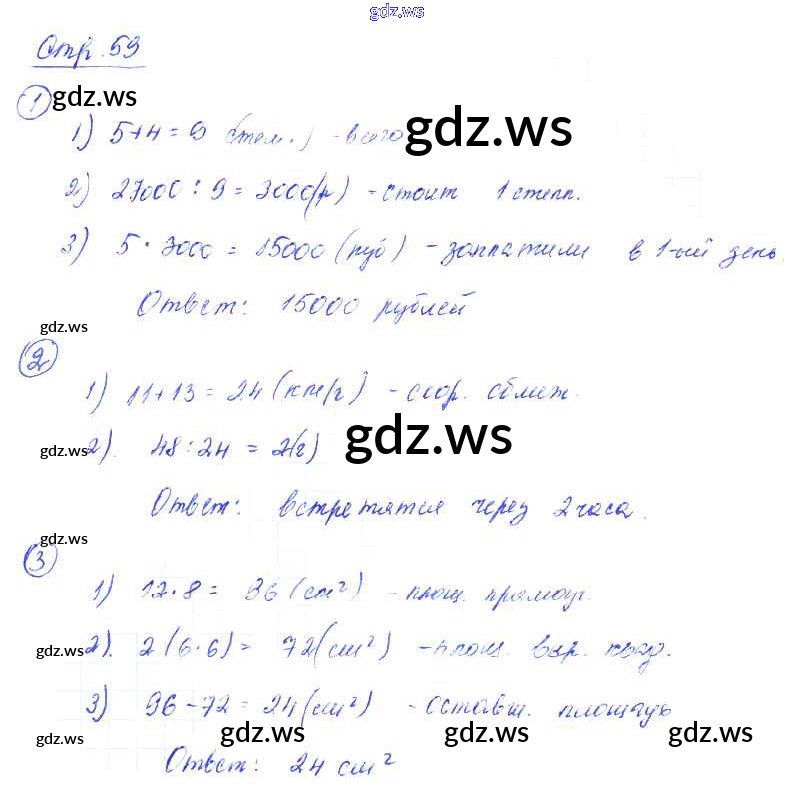 gdz.ws
Стр. 59
1 gdz.ws
1) 5+4=9 (тел.) - всего gdz.ws
2) 27000 : 9 = 3000(р) - стоит 1 степл.
3) 5 · 3000 = 15000 (руб) - заплатили в 1-ый день.
Ответ: 15000 рублей
gdz.ws
2
1) 11+13 = 24 (км/ч) - скор. сближ.
gdz.ws 2). 48:24 = 2(ч) gdz.ws
Ответ: встретятся через 2 часа.
gdz.ws
3
1) 12·8 = 96 (см²) - площ. прямоуг.
gdz.ws 2). 2(6·6) = 72(см²) - площ. выр. квад.
3) 96-72=24(см²) - оставш. площадь
gdz.ws gdz.ws gdz.ws
Ответ: 24 см²